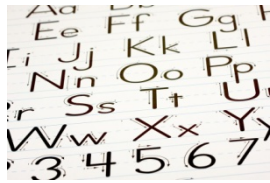 Aa Dd
Ee Ff Gg
i Jj Kk Ll
Nn Oo Pp
r Ss Tt U
Ww Xx Yy
3 4 5 6 7